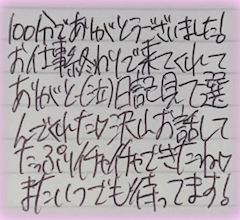 100分でありがとうございました!
お仕事終わりで来てくれて
ありがとう(泣)日記見て選
んでくれた♡沢山お話して
たっぷりイチャイチャできたね♡
またいつでも待ってます!